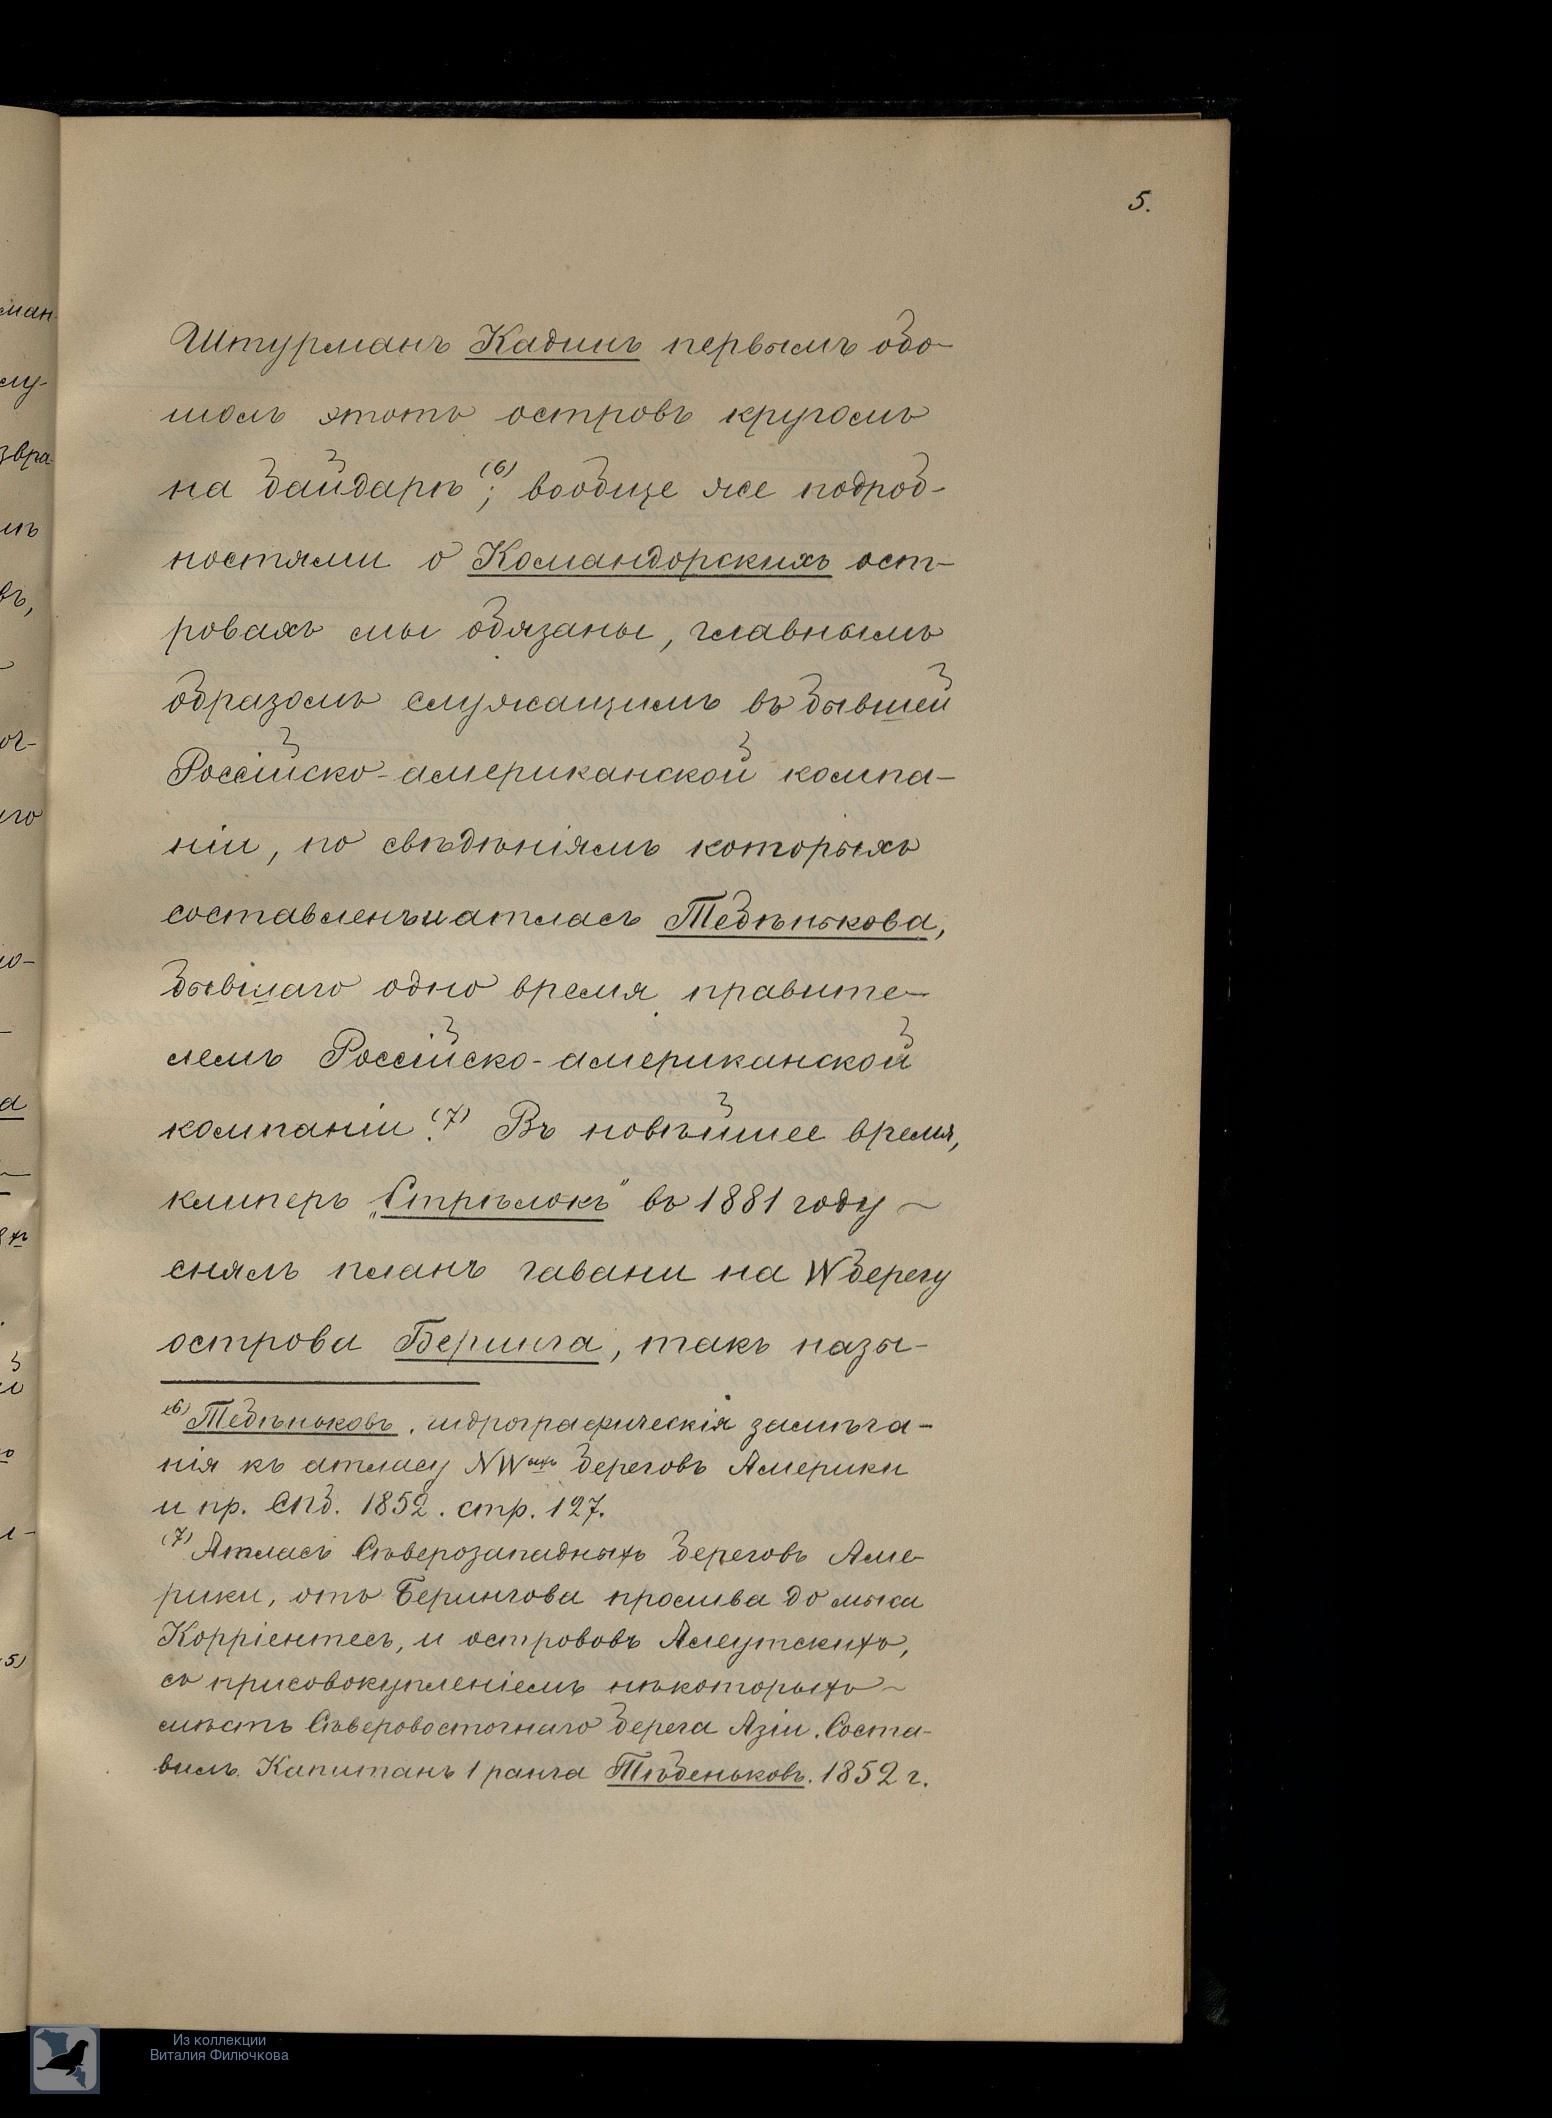 5.
Штурманъ Кадинъ первымъ обо-
шолъ этотъ островъ кругомъ
на байдарѣ (6); вообще же подроб-
ностями о Командорскихъ ост-
ровахъ мы обязаны, главнымъ
образомъ служащимъ въ бывшей
Россійско-американской компа-
ніи, по свѣдѣніямъ которыхъ
составленъ и атласъ Тебѣнькова,
бывшаго одно время правите-
лемъ Россійско-американской
компаніи. (7) Въ новѣйшее время,
клиперъ „Стрѣлокъ" въ 1881 году ~
снялъ планъ гавани на W берегу
острова Беринга, такъ назы-
(6) Тебѣньковъ. гидрографическія замѣча-
нія къ атласу NWыхъ береговъ Америки
и пр. Спб. 1852. стр. 127.
(7) Атласъ Сѣверозападныхъ береговъ Аме-
рики, отъ Берингова пролива до мыса
Корріентесъ, и острововъ Алеутскихъ,
съ присовокупленіемъ нѣкоторыхъ ~
мѣстъ Сѣверовосточнаго берега Азіи. Соста-
вилъ Капитанъ 1 ранга Тѣбеньковъ. 1852 г.
Из коллекции
Виталия Филючкова